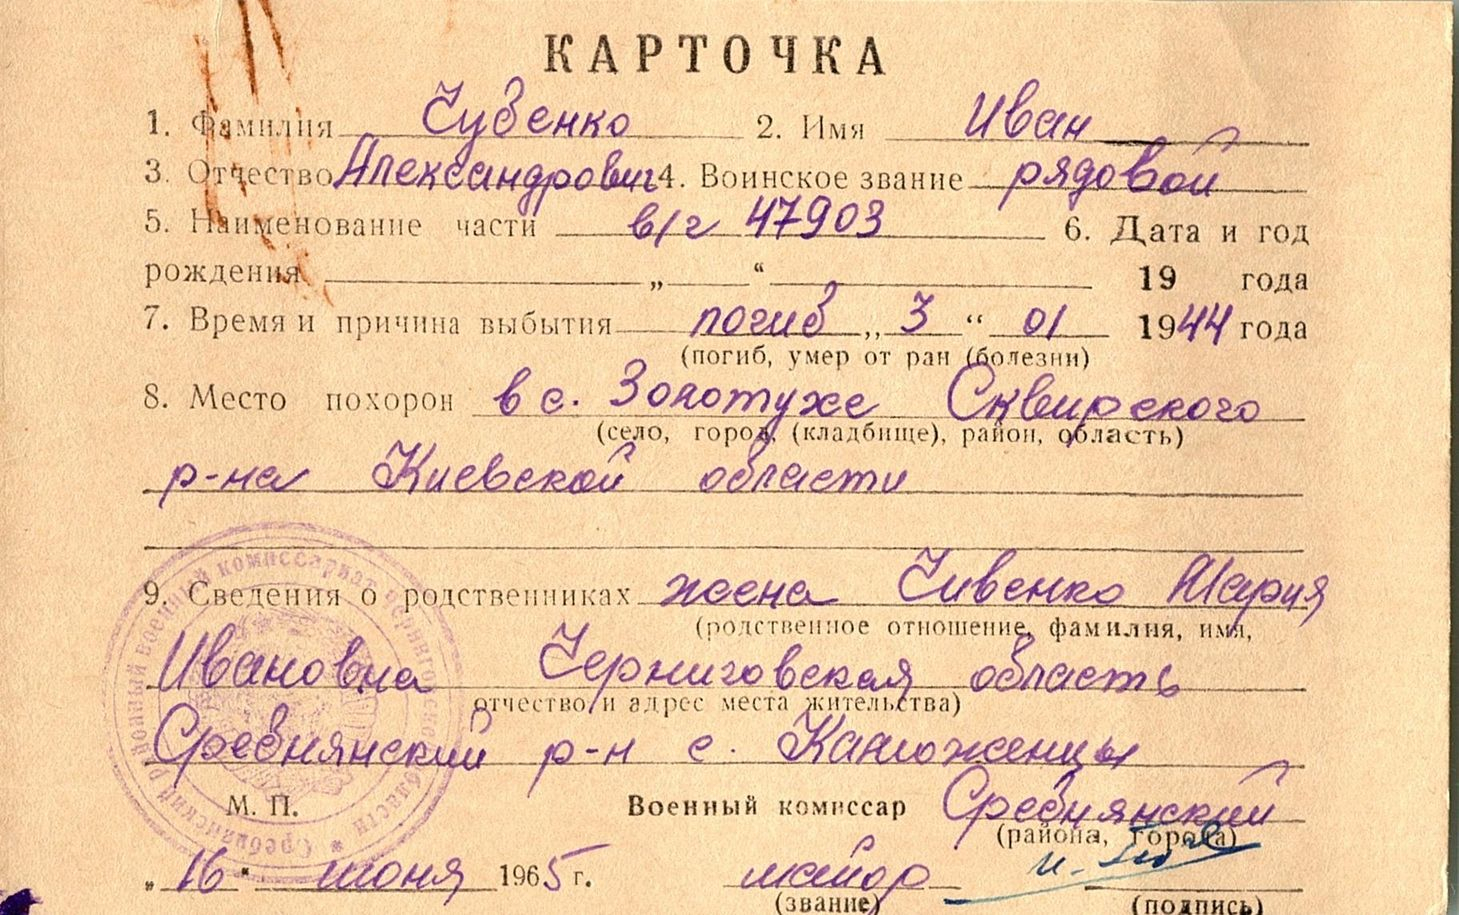 КАРТОЧКА
1. Фамилия Чубенко 2. Имя Иван
3. Отчество Александрович 4. Воинское звание рядовой
5. Наименование части в/ч 47903 6. Дата и год
рождения „ “ 19 года
7. Время и причина выбытия погиб „ 3 “ 01 1944 года
(погиб, умер от ран (болезни)
8. Место похорон в с. Золотухе Сквирского
(село, город, (кладбище), район, область)
р-на Киевской области
9. Сведения о родственниках жена Чивенко Мария
(родственное отношение, фамилия, имя,
Ивановна Черниговская область
отчество и адрес места жительства)
Сребнянский р-н с. Калюженцы
М. П. Военный комиссар Сребнянский
(района, города)
„ 16 “ июня 1965 г. майор
(звание) (подпись)
Сребнянский районный военный комиссариат Черниговской области